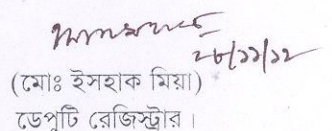 ২৮/১১/১২
(মোঃ ইসহাক মিয়া)
ডেপুটি রেজিস্ট্রার।